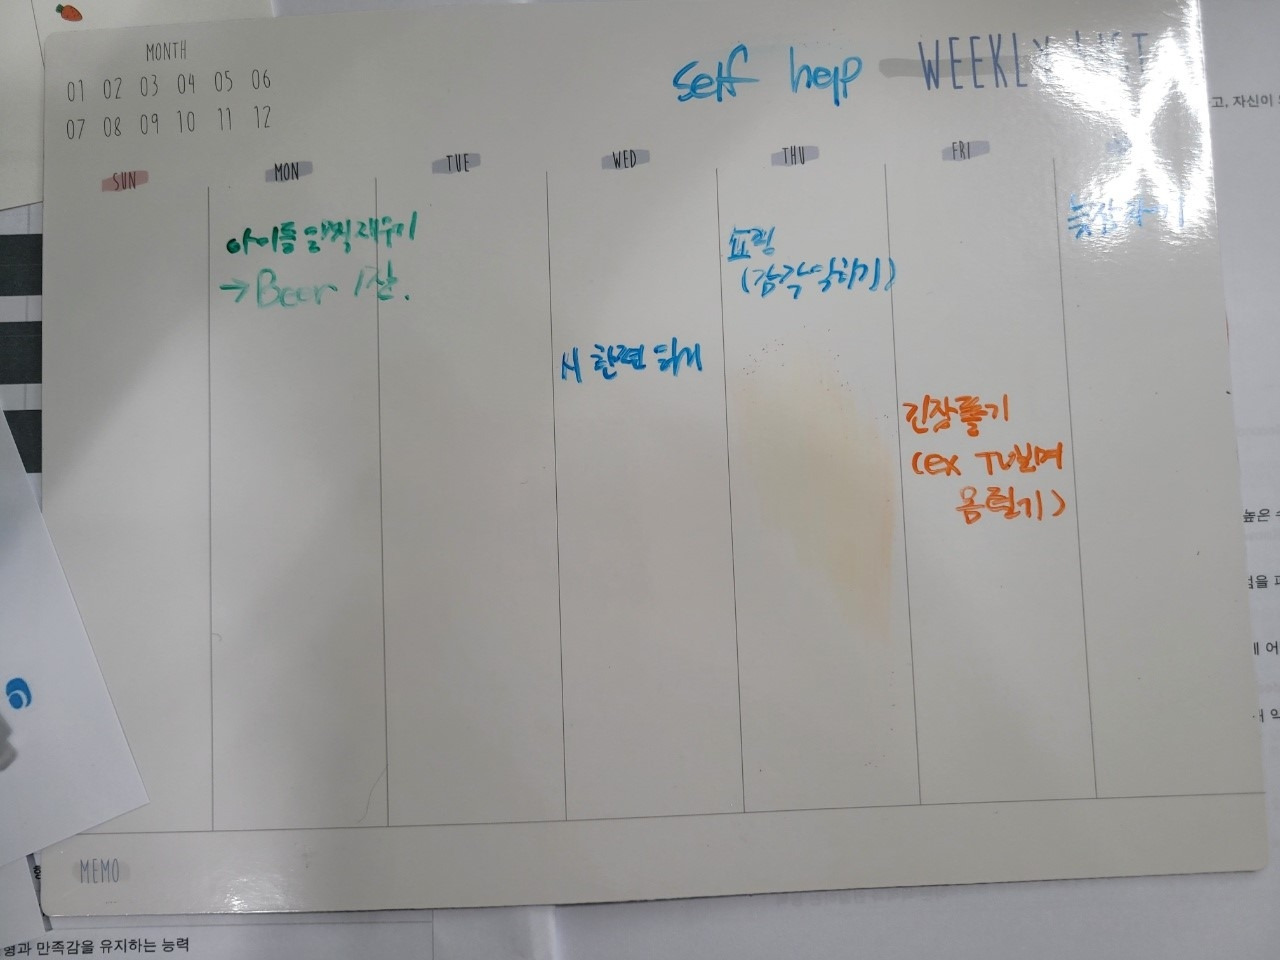 MONTH
01 02 03 04 05 06
07 08 09 10 11 12
self help
WEEKLY LIST
SUN
MON
TUE
WED
THU
FRI
아이들 일찍 재우기
→ Beer 1잔.
쇼핑
(감각 익히기)
시 한편 되기
긴장풀기
(ex TV보며
몸털기)
늦잠자기
MEMO
고, 자신이
높은
점을
에 어
영과 만족감을 유지하는 능력